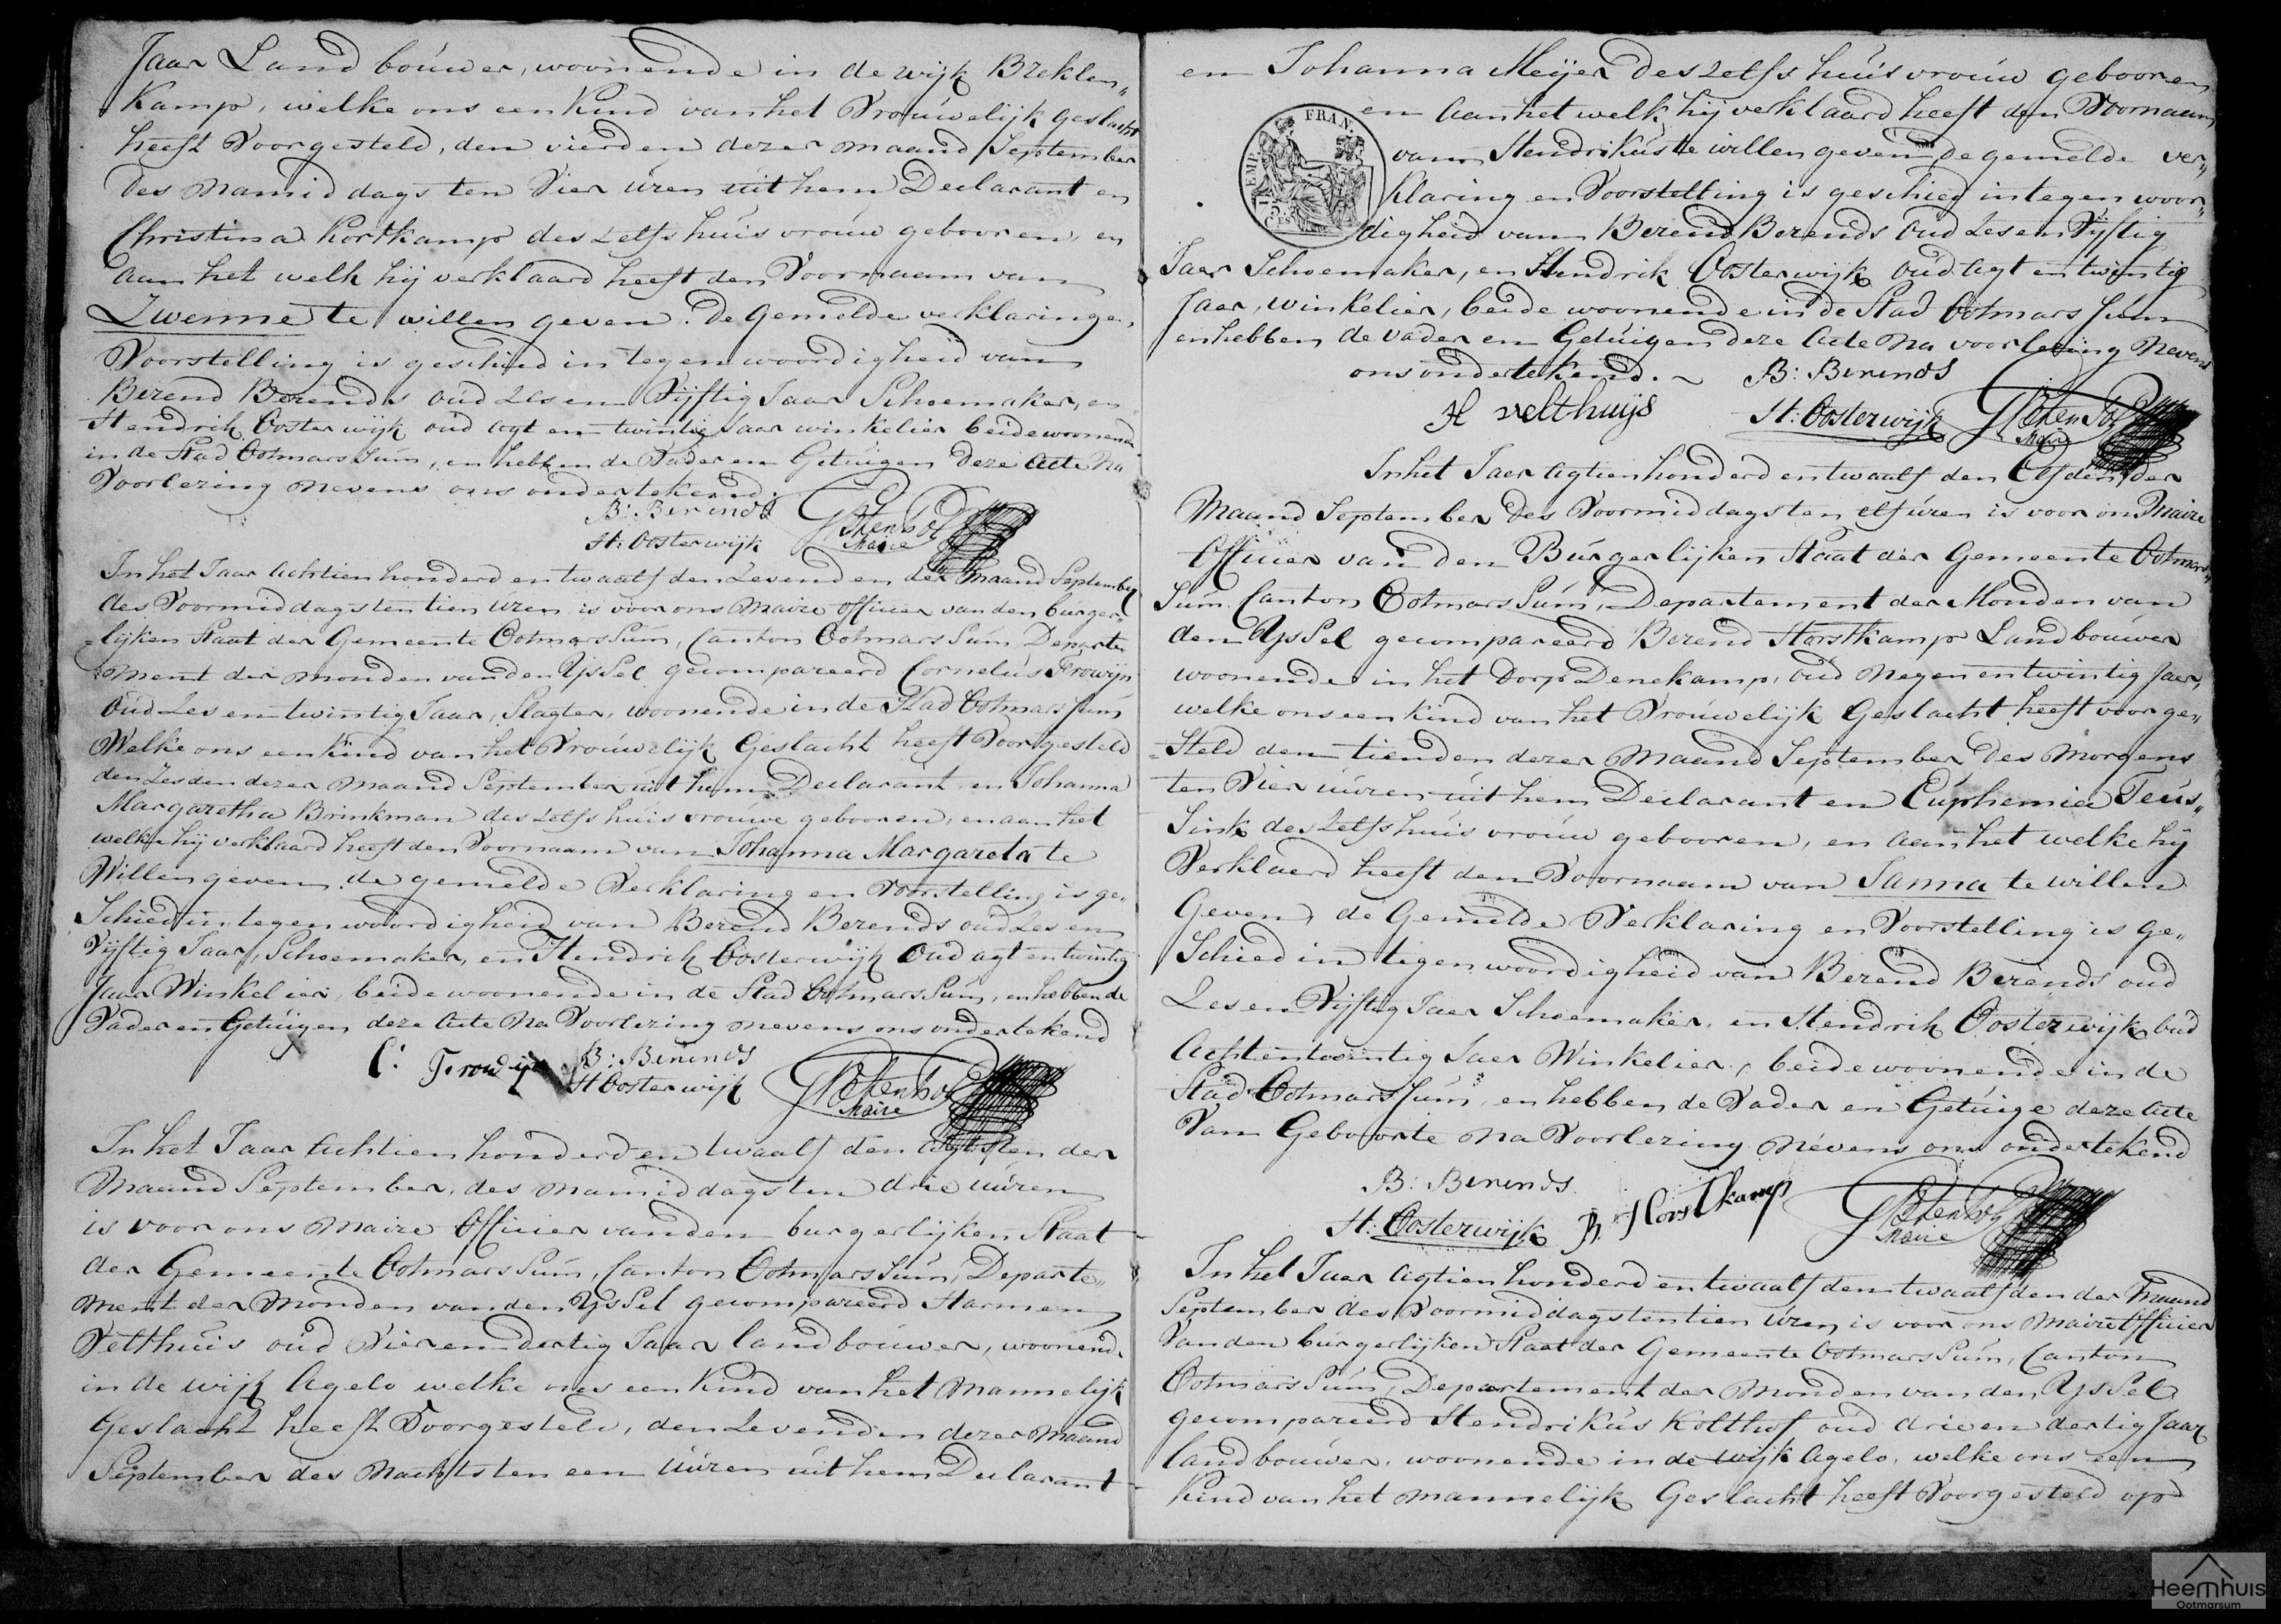 Jaar Landbouwer, woonende in de wijk Breklen„
kamp, welke ons een Kind van het Vrouwelijk geslacht
heeft Voorgesteld, den vierden dezer maand September
des Namiddags ten Vier uren uit hem Declarant en
Christina Kortkamp deszelfs huisvrouw gebooren, en
aan het welk hij verklaard heeft den Voornaam van
Zwenne te willen geven. De Gemelde verklaring en
Voorstelling is geschied in tegenwoordigheid van
Berend Berends oud Zes en Vijftig Jaar Schoemaker, en
Hendrik Oosterwijk oud agt en twintig Jaar winkelier beide woonende
in de Stad Ootmarssum, en hebben de Vader en Getuigen deze Acte Na
Voorlezing nevens ons ondertekend.
B: Berends
H: Oosterwijk
Maire
In het Jaar Achtien honderd en twaalf den Zevenden der Maand September
des Voormiddags ten tien uren is voor ons Maire officier van den burger„
lijken Staat der Gemeente Ootmarssum, Canton Ootmarssum, Departe„
ment der monden van den Yssel gecompareerd Cornelus Frowijn
Oud Zes en twintig Jaar, Slagter, woonende in de Stad Ootmarssum
Welke ons een Kind van het Vrouwelijk Geslacht heeft Voorgesteld
den Zesden dezer maand September uit hem Declarant en Johanna
Margaretha Brinkman deszelfs huisvrouwe gebooren, en aan het
welke hij verklaard heeft den Voornaam van Johanna Margareta te
Willen geven. de gemelde Verklaring en Voorstelling is ge„
Schied in tegenwoordigheid van Berend Berends oud Zes en
Vijftig Jaar, Schoemaker, en Hendrik Oosterwijk Oud agt en twintig
Jaar Winkelier, beide woonende in de Stad Ootmarssum, en hebben de
Vader en Getuigen deze Acte Na Voorlezing nevens ons ondertekend
C: Frowijn B: Berends
H Oosterwijk
Maire
In het Jaar Achtien honderd en twaalf den agtsten der
Maand September, des namiddags ten drie uuren
is voor ons Maire Officier van den burgerlijken Staat
der Gemeente Ootmarssum, Canton Ootmarssum, Departe„
ment der Monden van den Yssel gecompareerd Harmen
Velthuis oud Vier en dertig Jaar landbouwer, woonende
in de wijk Agelo welke ons een Kind van het Mannelijk
Geslacht heeft Voorgesteld, den Zevenden dezer Maand
September des Nachts ten een uuren uit hem Declarant
en Johanna Meijer deszelfs huisvrouw gebooren
en aan het welk hij verklaard heeft den Voornaam
van Hendrikus te willen geven de gemelde ver„
klaring en Voorstelling is geschied in tegenwoor„
digheid van Berend Berends Oud Zes en Vijftig
Jaar Schoemaker, en Hendrik Oosterwijk oud agt en twintig
Jaer, winkelier, beide woonende in de Stad Ootmarssum
en hebben de vader en Getuigen deze Acte na voorlezing Nevens
ons ondertekend. ~ B: Berends
H velthuijs H: Oosterwijk
Maire
EMP. FRAN.
In het Jaer Agtienhonderd en twaalf den Elfden der
Maand September des Voormiddags ten elf uren is voor ons Maire
Officier van den Burgerlijken Staat der Gemeente Ootmars„
sum Canton Ootmarssum, Departement der Monden van
den Yssel gecompareerd Berend Horstkamp Landbouwer
woonende in het Dorp Denekamp, oud Negen en twintig Jaer,
welke ons een kind van het Vrouwelijk Geslacht heeft voorge„
steld den tienden dezer Maand September des Morgens
ten Vier uuren uit hem Declarant en Euphemia Teus„
sink deszelfs huisvrouw gebooren, en aan het welke hij
Verklaerd heeft den Voornaam van Janna te willen
Geven, de Gemelde Verklaring en Voorstelling is ge„
Schied in tigenwoordigheid van Berend Berends oud
Zes en Vijftig Jaer Schoemaker, en Hendrik Oosterwijk oud
Achtentwintig Jaer Winkelier, beide woonende in de
Stad Ootmarssum, en hebben de Vader en Getuige deze Acte
Van Geboorte na Voorlezing Nevens ons ondertekend
B: Berends
H: Oosterwijk B. Horstkamp
Maire
In het Jaer Agtienhonderd en twaalf den twaalfden der Maand
September des Voormiddags ten tien uren is voor ons Maire Officier
Van den burgerlijken Staat der Gemeente Ootmarssum, Canton
Ootmarssum, Departement der Monden van den Yssel
gecompareerd Hendrikus Kolthof oud drie en dertig Jaar
landbouwer, woonende in de wijk Agelo, welke ons een
Kind van het mannelijk Geslacht heeft Voorgesteld op
Heemhuis
Ootmarsum